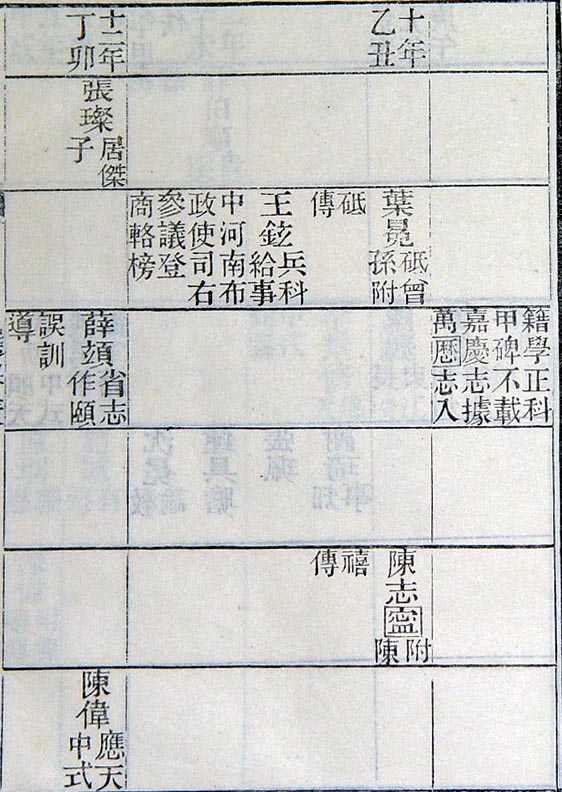 籍學正科
甲碑不載
嘉慶志據
萬厯志入
十年
乙丑
葉
砥曾
孫附
砥
傳
王鉉
兵科
給事
中河南布
政使司右
參議登
商輅榜
陳志
附
陳
禧
傳
十二年
丁卯
張璨
居傑
子
薛
省志
作頤
誤訓
導
陳偉
應天
中式